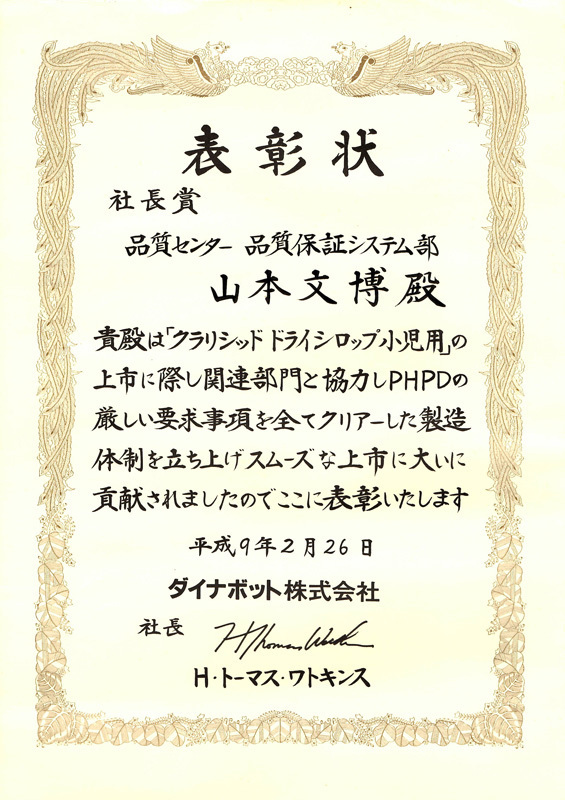 表彰状
社長賞
品質センター 品質保証システム部
山本文博殿
貴殿は「クラリシッド ドライシロップ小児用」の
上市に際し関連部門と協力しPHPDの
厳しい要求事項を全てクリアーした製造
体制を立ち上げスムーズな上市に大いに
貢献されましたのでここに表彰いたします
平成9年2月26日
ダイナボット株式会社
社長
H・トーマス・ワトキンス